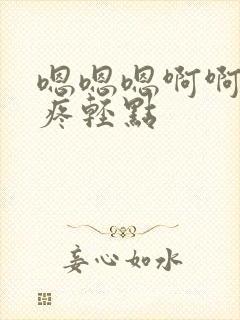 嗯嗯嗯啊啊
疼輕點
妄心如水